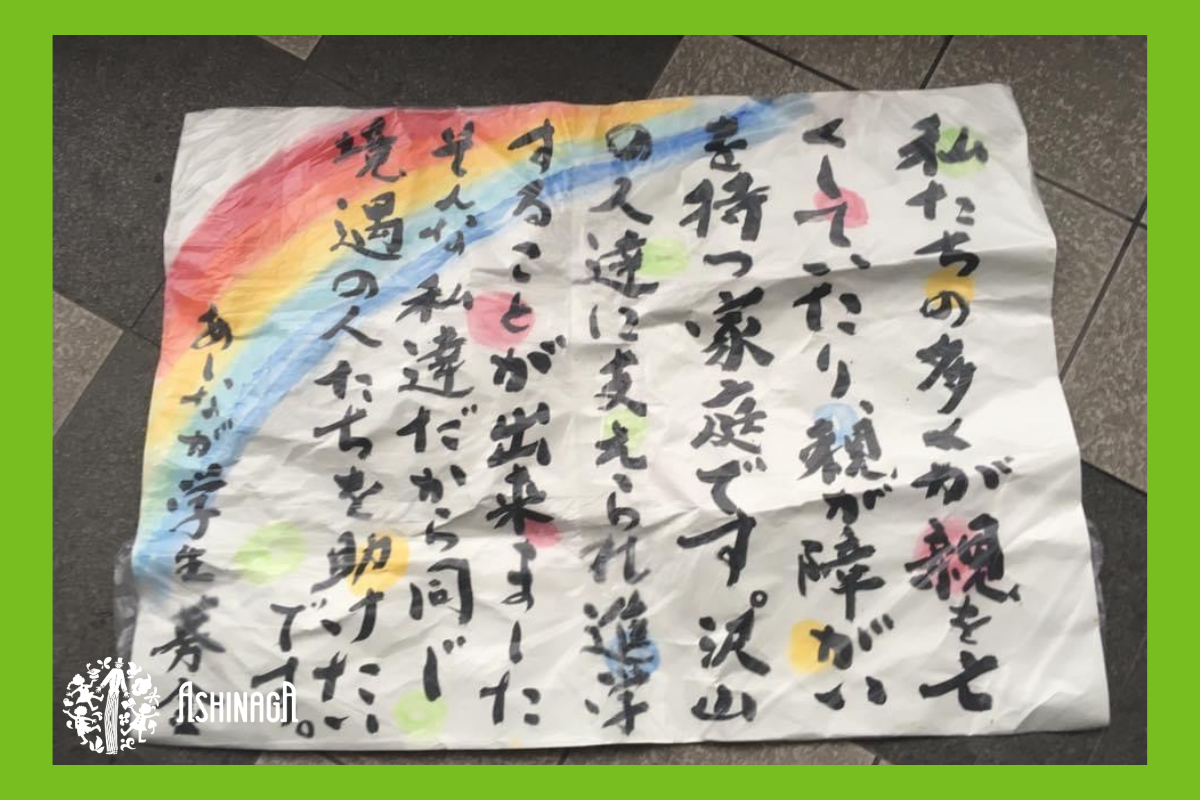 私たちの多くが親を亡
くしていたり、親が障がい
を持つ家庭です。沢山
の人達に支えられ進学
することが出来ました
そんな私達だから同じ
境遇の人たちを助けたい
です。
あしなが学生募金
ASHINAGA